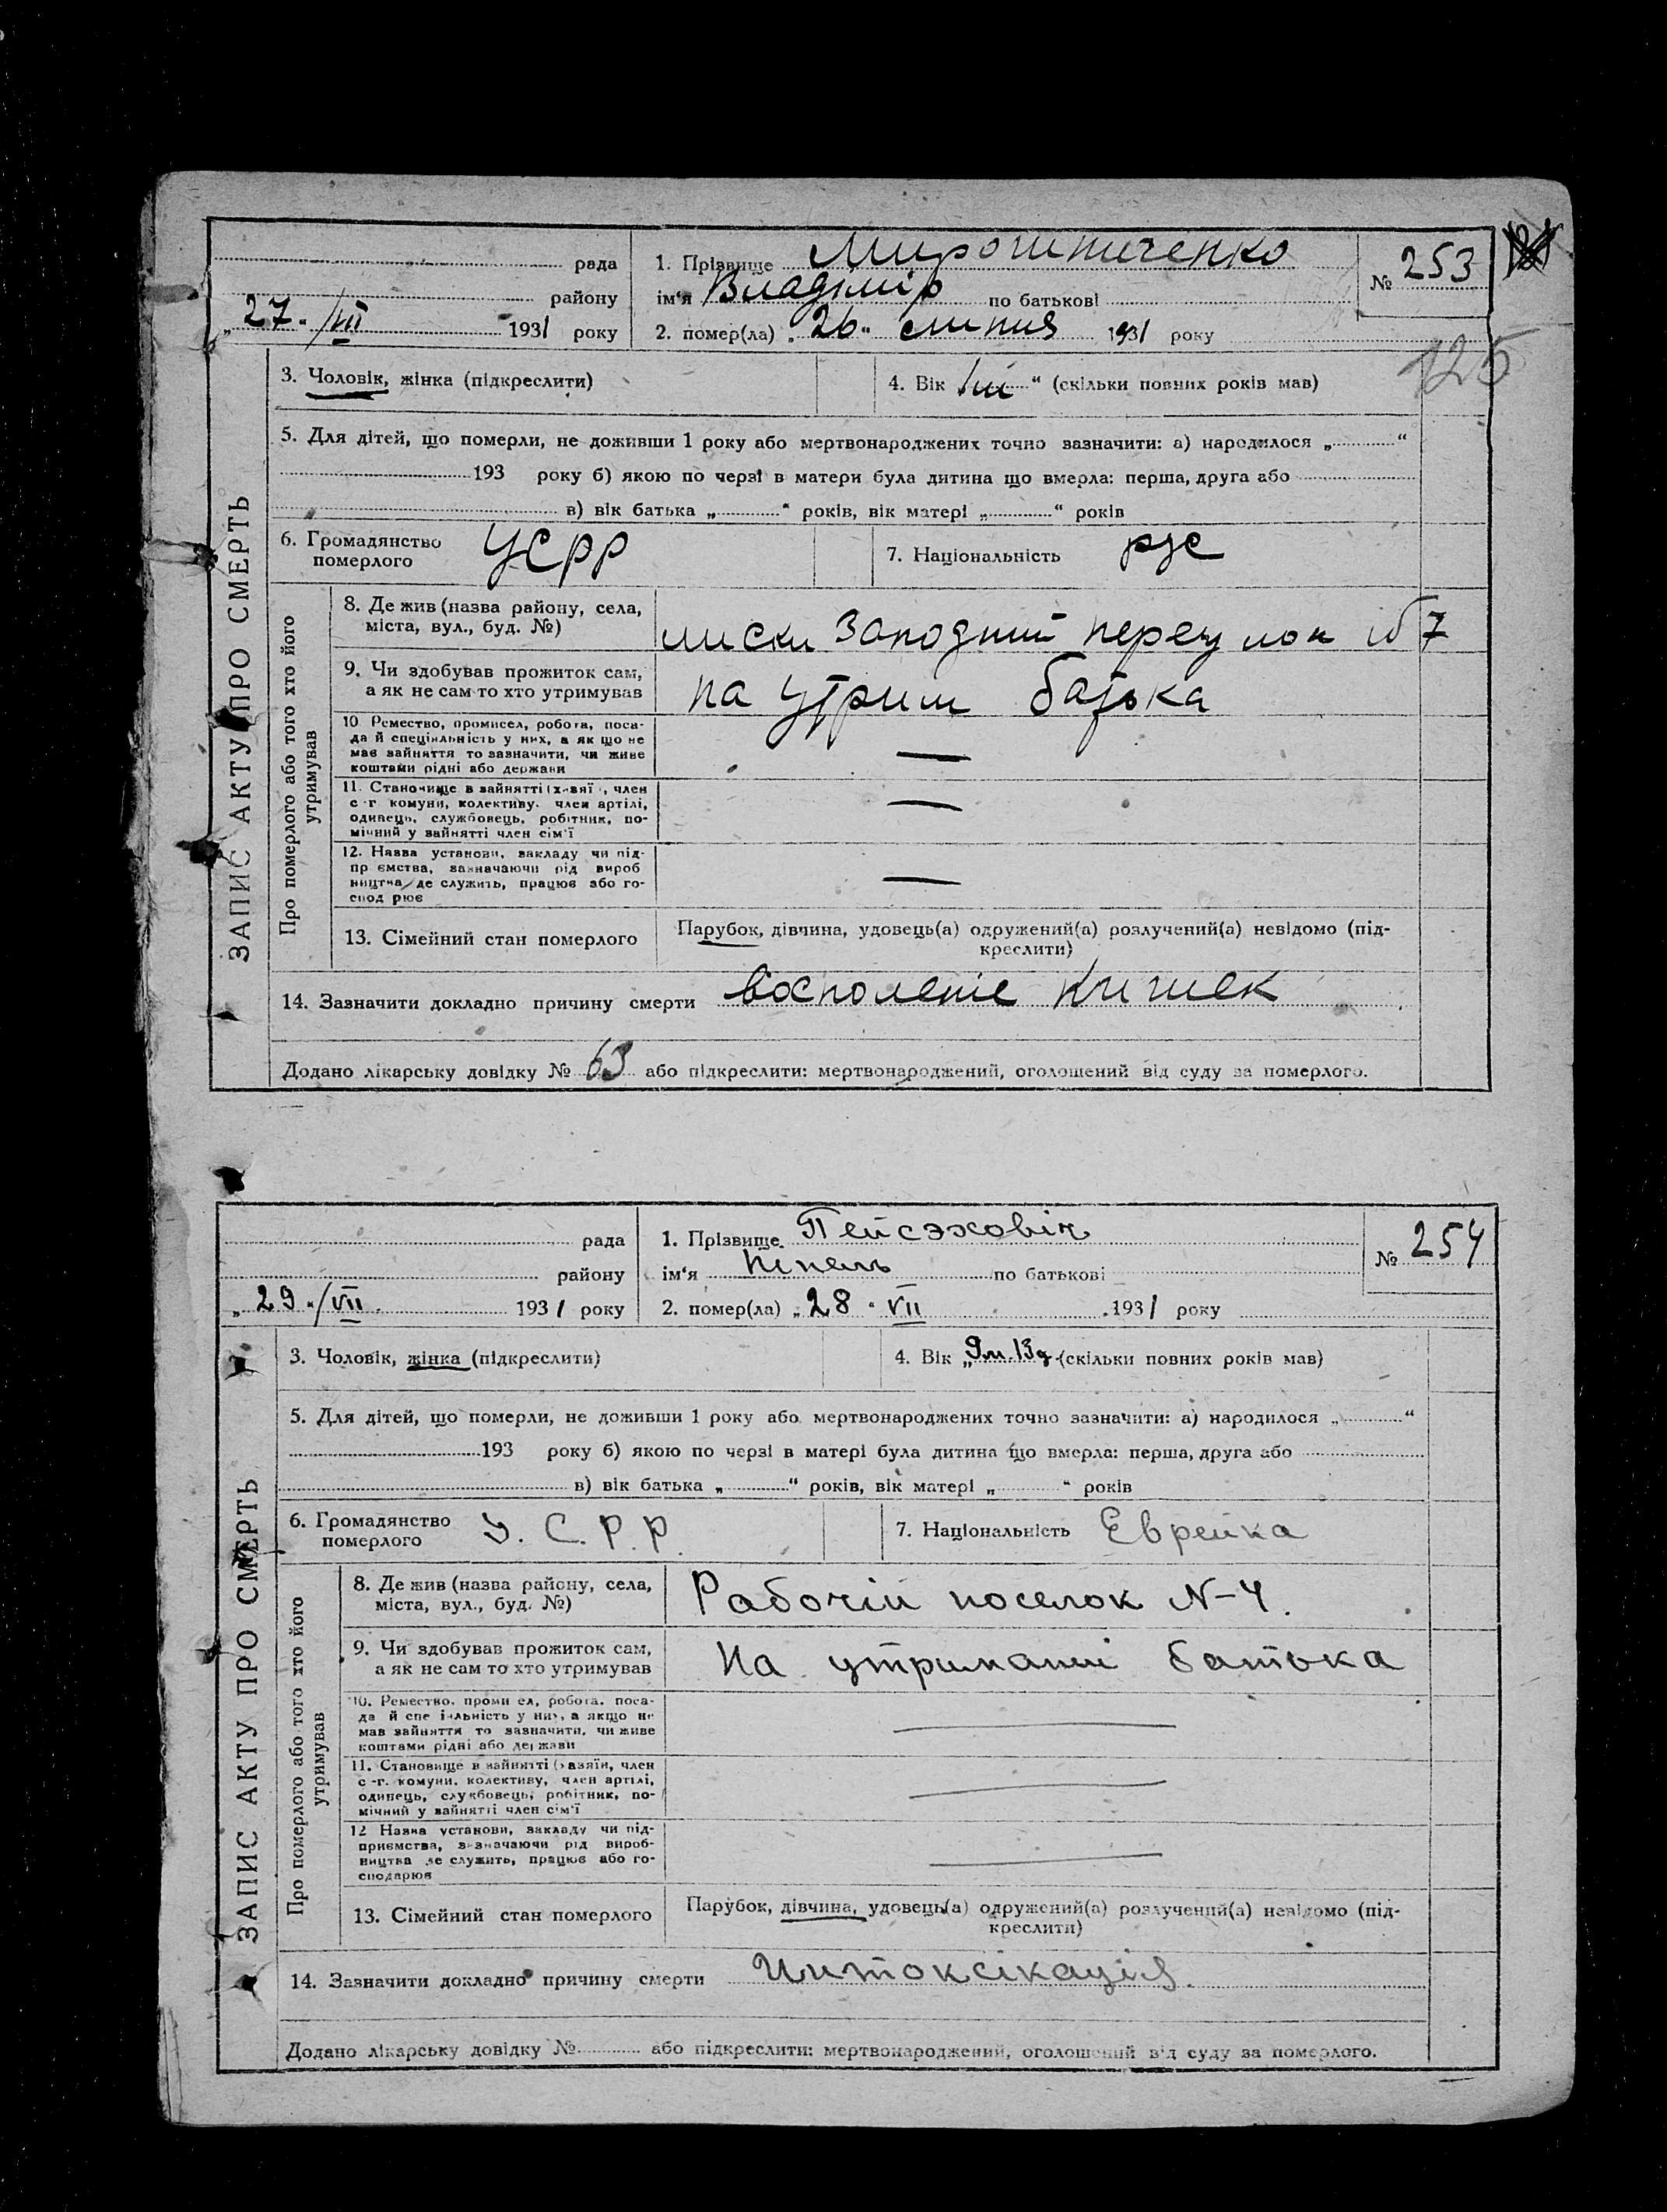 ЗАПИС АКТУ ПРО СМЕРТЬ
рада
району
„27“/VII 1931 року
1. Прізвище Мирошниченко
ім‘я Владімір по батькові
№ 253
2. помер(ла) „26“ липня 1931 року
125
3. Чоловік, жінка (підкреслити)
4. Вік “ (скільки повних років мав)
5. Для дітей, що померли, не доживши 1 року або мертвонароджених точно зазначити: а) народилося „ “
193 року б) якою по черзі в матери була дитина що вмерла: перша, друга або
в) вік батька „ “ років, вік матері „ “ років
6. Громадянство померлого УСРР
7. Національність рус
Про померлого або того хто його утримував
8. Де жив (назва району, села,
міста, вул., буд. №)
Западний переулок № 7
9. Чи здобував прожиток сам,
а як не сам то хто утримував
на утрим батька
10 Ремество, промисел, робота, поса-
да й спеціяльність у них, а як що не
мав зайняття то зазначити, чи живе
коштами рідні або держави
—
11. Становище в зайнятті член
с-г комуни, колективу, член артілі,
одинець, службовець, робітник, по-
мічний у зайнятті член сім‘ї
—
12. Назва установи, закладу чи під-
пр ємства, зазначаючи рід вироб
ництва де служить, працює або го-
спод рює
—
13. Сімейний стан померлого
Парубок, дівчина, удовець(а) одружений(а) розлучений(а) невідомо (під-
креслити)
14. Зазначити докладно причину смерти восполеніе кишек
Додано лікарську довідку № 63 або підкреслити: мертвонароджений, оголошений від суду за померлого.
ЗАПИС АКТУ ПРО СМЕРТЬ
рада
району
„29“/VII. 1931 року
1. Прізвище Пейсэховіч
ім‘я по батькові
№ 254
2. помер(ла) „28“ VII 1931 року
3. Чоловік, жінка (підкреслити)
4. Вік „9 м. 13 д. (скільки повних років мав)
5. Для дітей, що померли, не доживши 1 року або мертвонароджених точно зазначити: а) народилося „ “
193 року б) якою по черзі в матері була дитина що вмерла: перша, друга або
в) вік батька „ “ років, вік матері „ “ років
6. Громадянство померлого У. С. Р. Р.
7. Національність Еврейка
Про померлого або того хто його утримував
8. Де жив (назва району, села,
міста, вул., буд. №)
Рабочій поселок N-4.
9. Чи здобував прожиток сам,
а як не сам то хто утримував
На утриманні батька
10. Ремество, проми ел, робота, поса-
да й спе іяльність у них, а якщо не
мав зайняття то зазначити, чи живе
коштами рідні або держави
—
11. Становище в зайнятті член
с-г. комуни, колективу, член артілі,
одинець, службовець, робітник, по-
мічний у зайнятті член сім‘ї
—
12 Назва установи, закладу чи під-
приємства, зазначаючи рід вироб-
ництва де служить, працює або го-
сподарює
—
13. Сімейний стан померлого
Парубок, дівчина, удовець(а) одружений(а) розлучений(а) невідомо (під-
креслити)
14. Зазначити докладно причину смерти Интоксікація.
Додано лікарську довідку № або підкреслити: мертвонароджений, оголошений від суду за померлого.